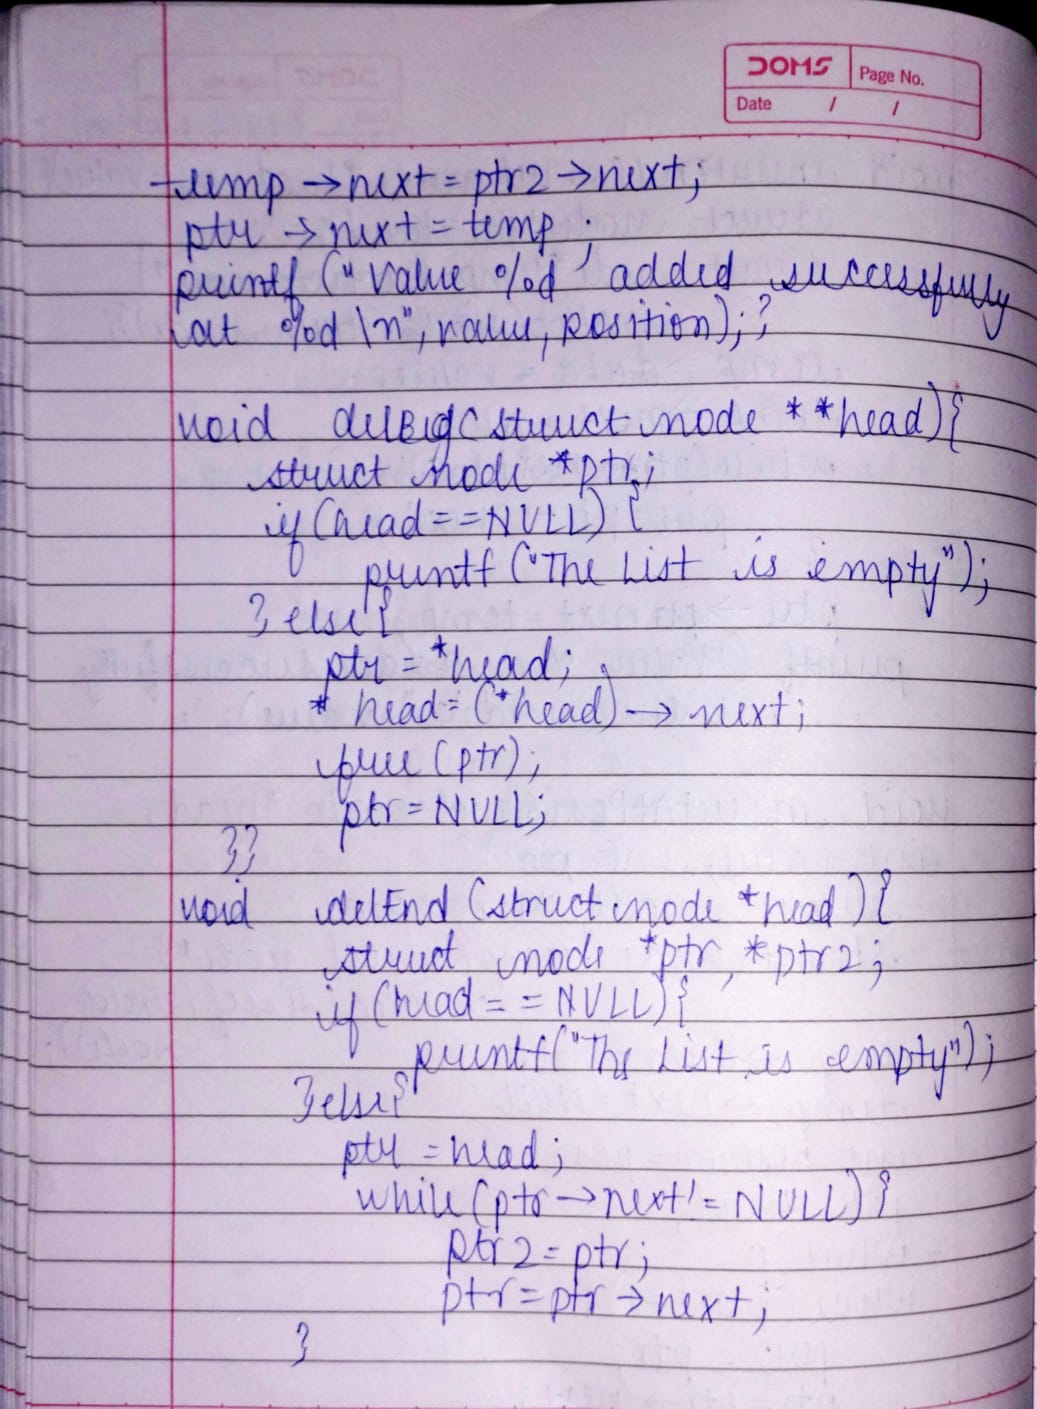 DOMS Page No.
Date / /
temp → next = ptr2 → next;
ptr → next = temp ;
printf ("Value %d' added successfully
at %d \n", value, position); }
void delBig( struct node * *head) {
struct node *ptr;
if (head == NULL) {
printf ("The List is empty");
} else {
ptr = *head;
* head = (*head) → next;
free (ptr);
ptr = NULL;
}}
void delEnd (struct node *head) {
struct node *ptr, *ptr2;
if (head == NULL) {
printf("The List is empty");
} else {
ptr = head;
while (ptr → next != NULL) {
ptr2 = ptr;
ptr = ptr → next;
}